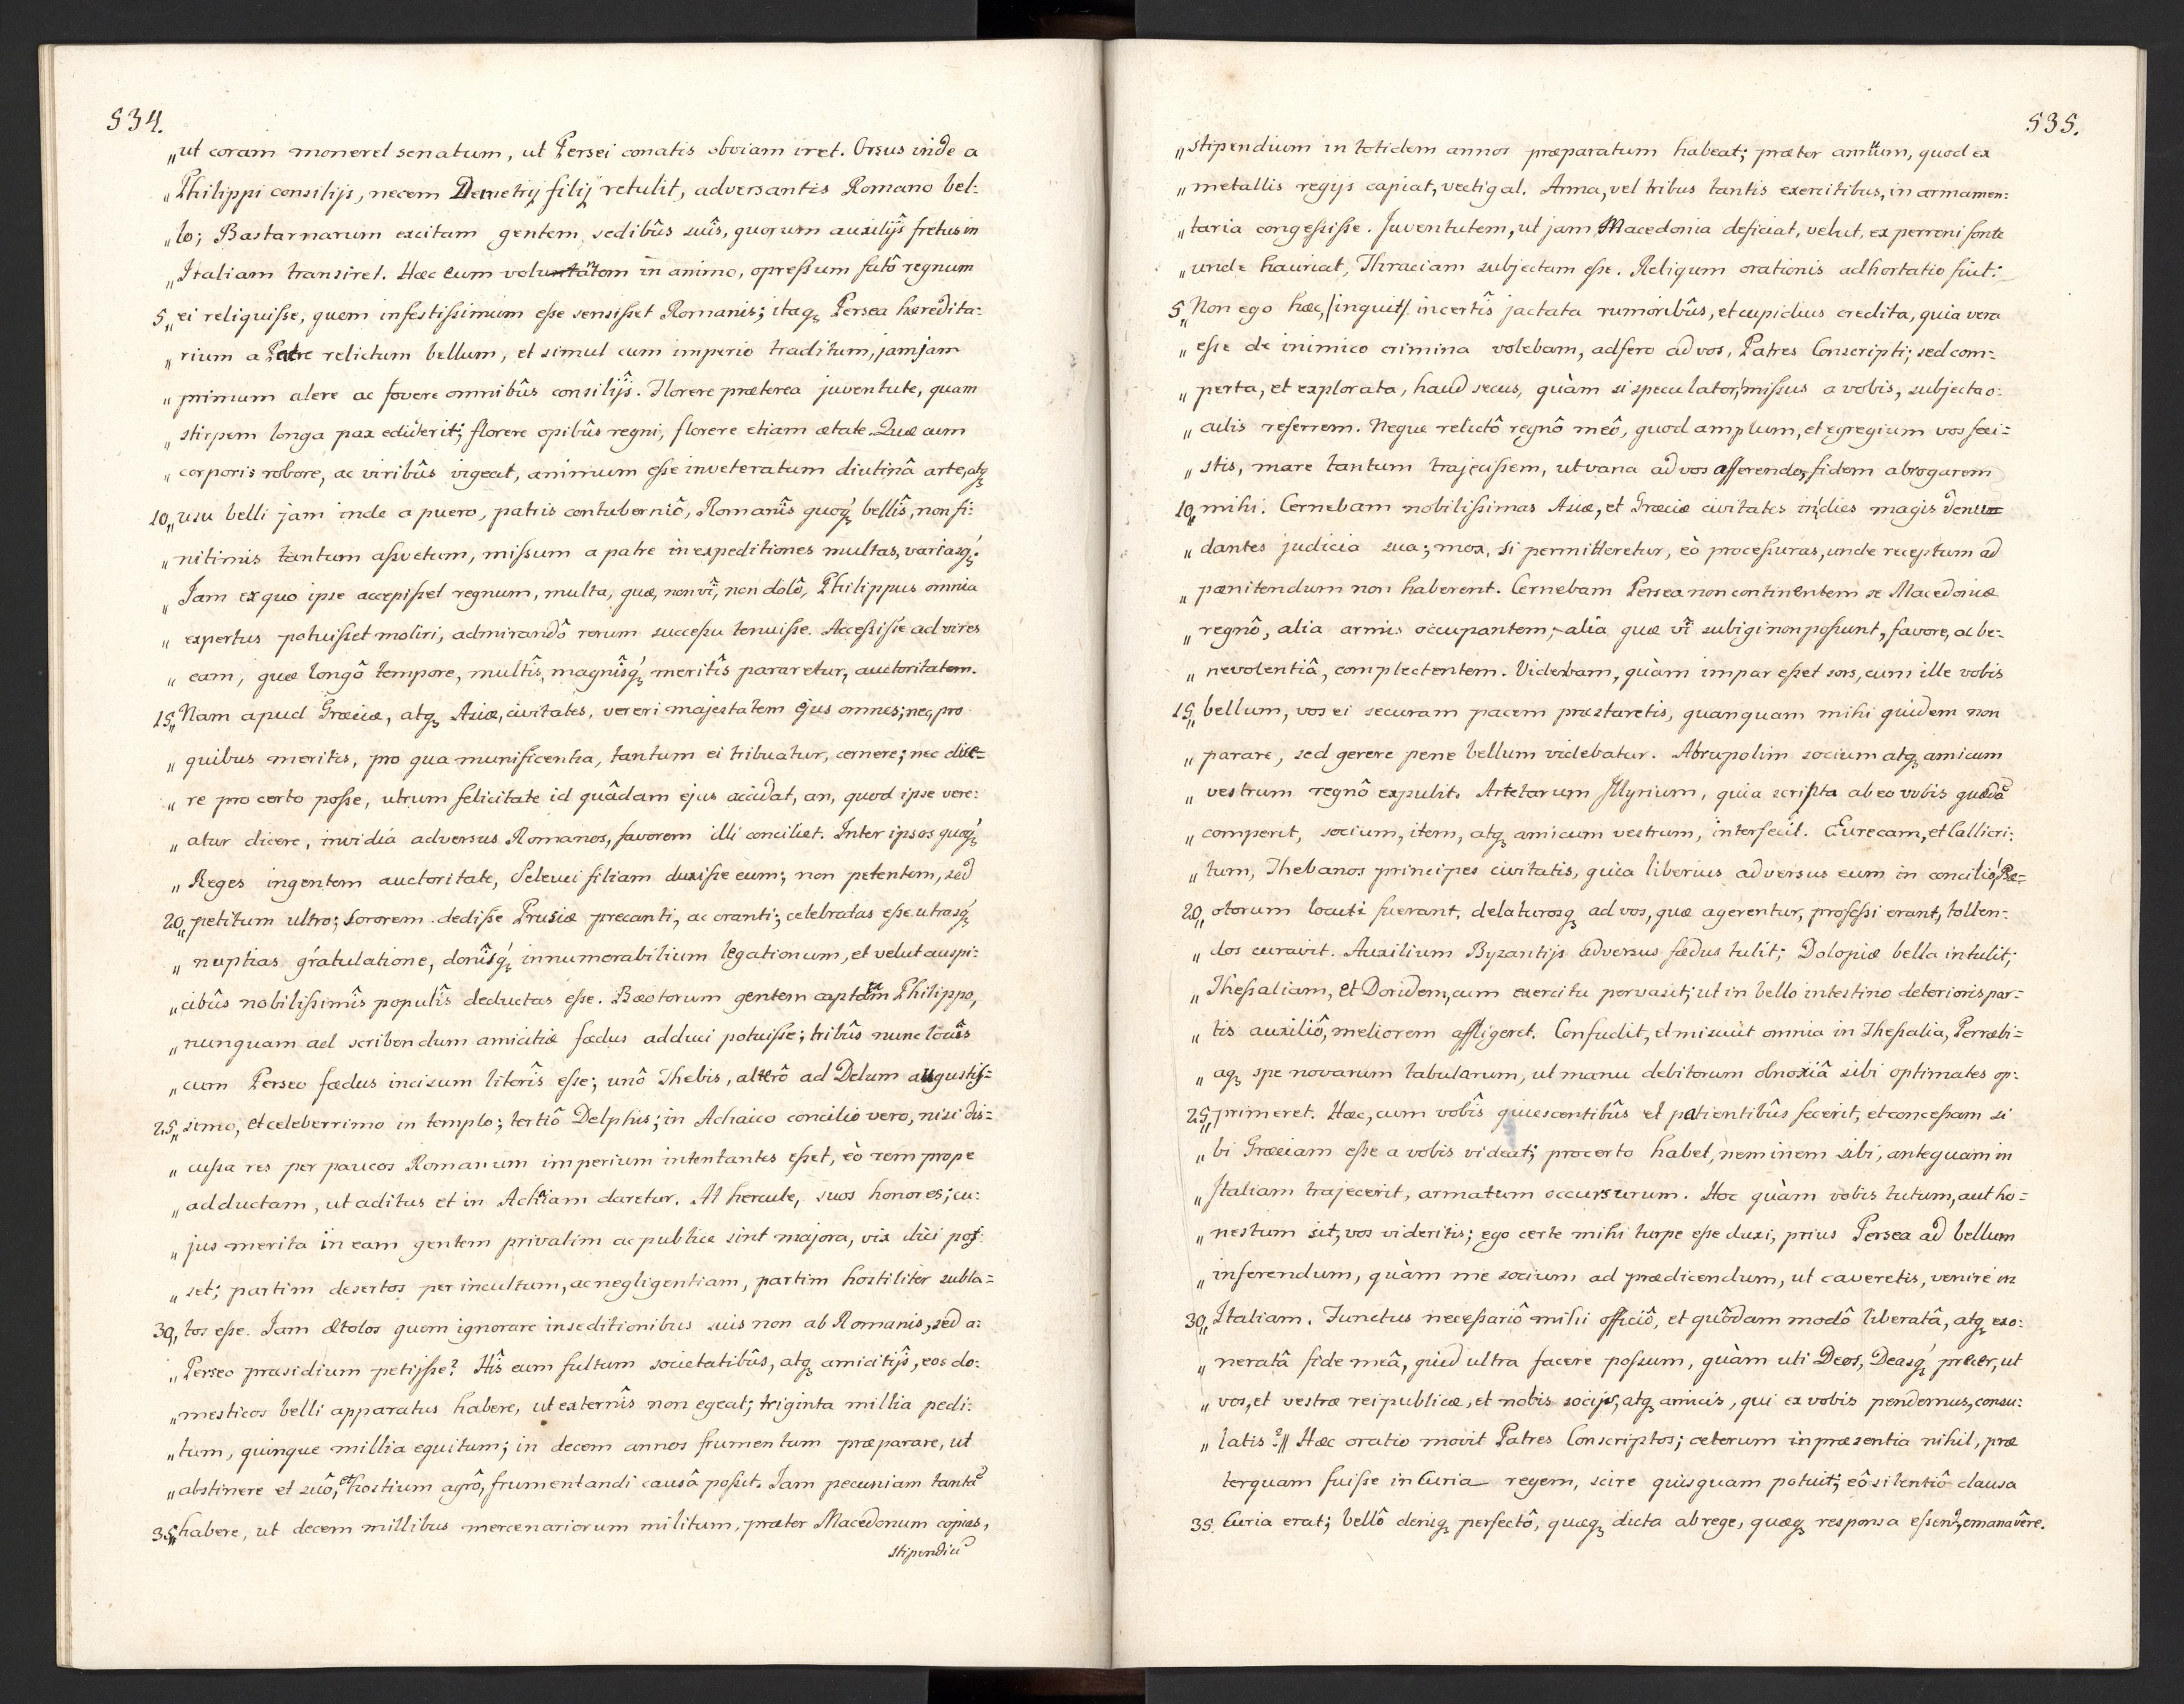 534.
„ut coram moneret senatum, ut Persei conatis obviam iret. Orsus inde a
„Philippi consilijs, necem Demetrij filij retulit, adversantis Romano bel:
„lo; Bastarnarum excitam gentem sedibûs suîs, quorum auxilijs fretus in
„Italiam transiret. Hæc eum volutantem in animo, opreſsum fatô regnum
5„ei reliquiſse, quem infestiſsimum eſse sensiſset Romanis; itaqȝ Persea hæredita:
„rium a Patre relictum bellum, et simul cum imperio traditum, jamjam
„primum alere ac fovere omnibûs consilijs. Florere præterea juventute, quam
„stirpem longa pax ediderit; florere opibûs regni, florere etiam ætate. Quæ cum
„corporis robore, ac viribûs vigeat, animum eſse inveteratum diutinâ arte, atqȝ
10„usu belli jam inde a puero, patris contuberniô, Romanîs quoqȝ bellîs, non fi:
„nitimis tantum aſsvetum, miſsum a patre in expeditiones multas, variasqȝ.
„Jam ex quo ipse accepiſset regnum, multa, quæ, non vî, non dolô, Philippus omnia
„expertus potuiſset moliri, admirandô rerum succeſsu tenuiſse. Acceſsiſse ad vires
„eam, quæ longô tempore, multîs, magnîsqȝ meritîs pararetur, auctoritatem.
15„Nam apud Græciæ, atqȝ Asiæ, civitates, vereri majestatem ejus omnes; nec, pro
„quibus meritis, pro qua munificentia, tantum ei tribuatur, cernere; nec dice=
„re pro certo poſse, utrum felicitate id quâdam ejus accidat, an, quod ipse vere:
„atur dicere, invidia adversus Romanos, favorem illi conciliet. Inter ipsos quoqȝ
„Reges ingentem auctoritate, Seleuci filiam duxiſse eum; non petentem, sed
20„petitum ultro; sororem dediſse Prusiæ precanti, ac oranti; celebratas eſse utrasqȝ
„nuptias gratulatione, donîsqȝ innumerabilium legationum, et velut auspi:
„cibûs nobiliſsimîs populîs deductas eſse. Bæotorum gentem captatam Philippo,
„nunquam ad scribendum amicitiæ fædus adduci potuiſse; tribûs nunc locîs
„cum Perseo fædus incisum literîs eſse; unô Thebis, alterô ad Delum augustiſ=
25„simo, et celeberrimo in templo; tertiô Delphis; in Achaico concilio vero, nisi dis=
„cuſsa res per paucos Romanum imperium intentantes eſset, eò rem prope
„adductam, ut aditus et in Achaiam daretur. At hercule, suos honores; cu:
„jus merita in eam gentem privatim ac publice sint majora, vix dici poſ:
„set; partim desertos per incultum, ac negligentiam, partim hostiliter subla=
30„tos eſse. Jam Ætolos quem ignorare in seditionibus suis non ab Romanis, sed a:
„Perseo præsidium petijſse? Hîs eum fultum societatibûs, atqȝ amicitijs, eos do:
„mesticos belli apparatus habere, ut externîs non egeat; triginta millia pedi:
„tum, quinque millia equitum; in decem annos frumentum præparare, ut
„abstinere et suô, et hostium agrô, frumentandi causâ poſsit. Jam pecuniam tantã
35„habere, ut decem millibus mercenariorum militum, præter Macedonum copias,
stipendiũ
535.
„stipendium in totidem annos præparatum habeat; præter annuum, quod ex
„metallis regijs capiat, vectigal. Arma, vel tribus tantis exercitibus, in armamen:
„taria congeſsiſse. Juventutem, ut jam Macedonia deficiat, velut, ex perreni fonte
„unde hauriat, Thraciam subjectam eſse. Reliqum orationis adhortatio fuit:
5„Non ego hæc, /inquit/ incertîs jactata rumoribûs, et cupidius credita, quia vera
„eſse de inimico crimina volebam, adfero ad vos, Patres Conscripti; sed com:
„perta, et explorata, haud secus, quàm si speculator, miſsus a vobis, subjecta o:
„culis referrem. Neque relictô regnô meô, quod amplum, et egregium vos feci=
„stis, mare tantum trajeciſsem, ut vana ad vos afferendo, fidem abrogarem
10„mihi. Cernebam nobiliſsimas Asiæ, et Græciæ civitates in dies magis denu=
„dantes judicia sua; mox, si permitteretur, eò proceſsuras, unde receptum ad
„pænitendum non haberent. Cernebam Persea non continentem se Macedoniæ
„regnô, alia armis occupantem; alia quæ vî subigi non poſsunt, favore, ac be:
„nevolentiâ, complectentem. Videbam, quàm impar eſset sors, cum ille vobis
15„bellum, vos ei securam pacem præstaretis, quanquam mihi quidem non
„parare, sed gerere pene bellum videbatur. Abrupolim socium atqȝ amicum
„vestrum regnô expulit. Artetarum Illyrium, quia scripta ab eo vobis quædã
„comperit, socium, item, atqȝ amicum vestrum, interfecit. Eurecam, et Callicri:
„tum, Thebanos principes civitatis, quia liberius adversus eum in concilio Bæ=
20„otorum locuti fuerant, delaturosqȝ ad vos, quæ agerentur, profeſsi erant, tollen:
„dos curavit. Auxilium Byzantijs adversus fædus tulit; Dolopiæ bella intulit;
„Theſsaliam, et Doridem, cum exercitu pervasit; ut in bello intestino deterioris par:
„tis auxiliô, meliorem affligeret. Confudit, et miscuit omnia in Theſsalia, Perræbi=
„aqȝ spe novarum tabularum, ut manu debitorum obnoxiâ sibi optimates op:
25„primeret. Hæc, cum vobîs quiescentibûs et patientibûs fecerit, et conceſsam si
„bi Græciam eſse a vobis videat; pro certo habet, neminem sibi, antequam in
„Italiam trajecerit, armatum occursurum. Hoc quàm vobis tutum, aut ho=
„nestum sit, vos videritis; ego certe mihi turpe eſse duxi, prius Persea ad bellum
„inferendum, quàm me socium ad prædicendum, ut caveretis, venire in
30„Italiam. Functus neceſsariô mihi officiô, et quôdam modô liberatâ, atqȝ exo:
„neratâ fide meâ, quid ultra facere poſsum, quàm uti Deos, Deasqȝ precer, ut
„vos, et vestræ reipublicæ, et nobis socijs, atqȝ amicis, qui ex vobis pendemus, consu:
„latis?// Hæc oratio movit Patres Conscriptos; ceterum in præsentia nihil, præ
terquam fuiſse in Curia regem, scire quisquam potuit; eô silentiô clausa
35. Curia erat; bellô deniqȝ perfectô, quæqȝ dicta ab rege, quæqȝ responsa eſsent, emanavêre.